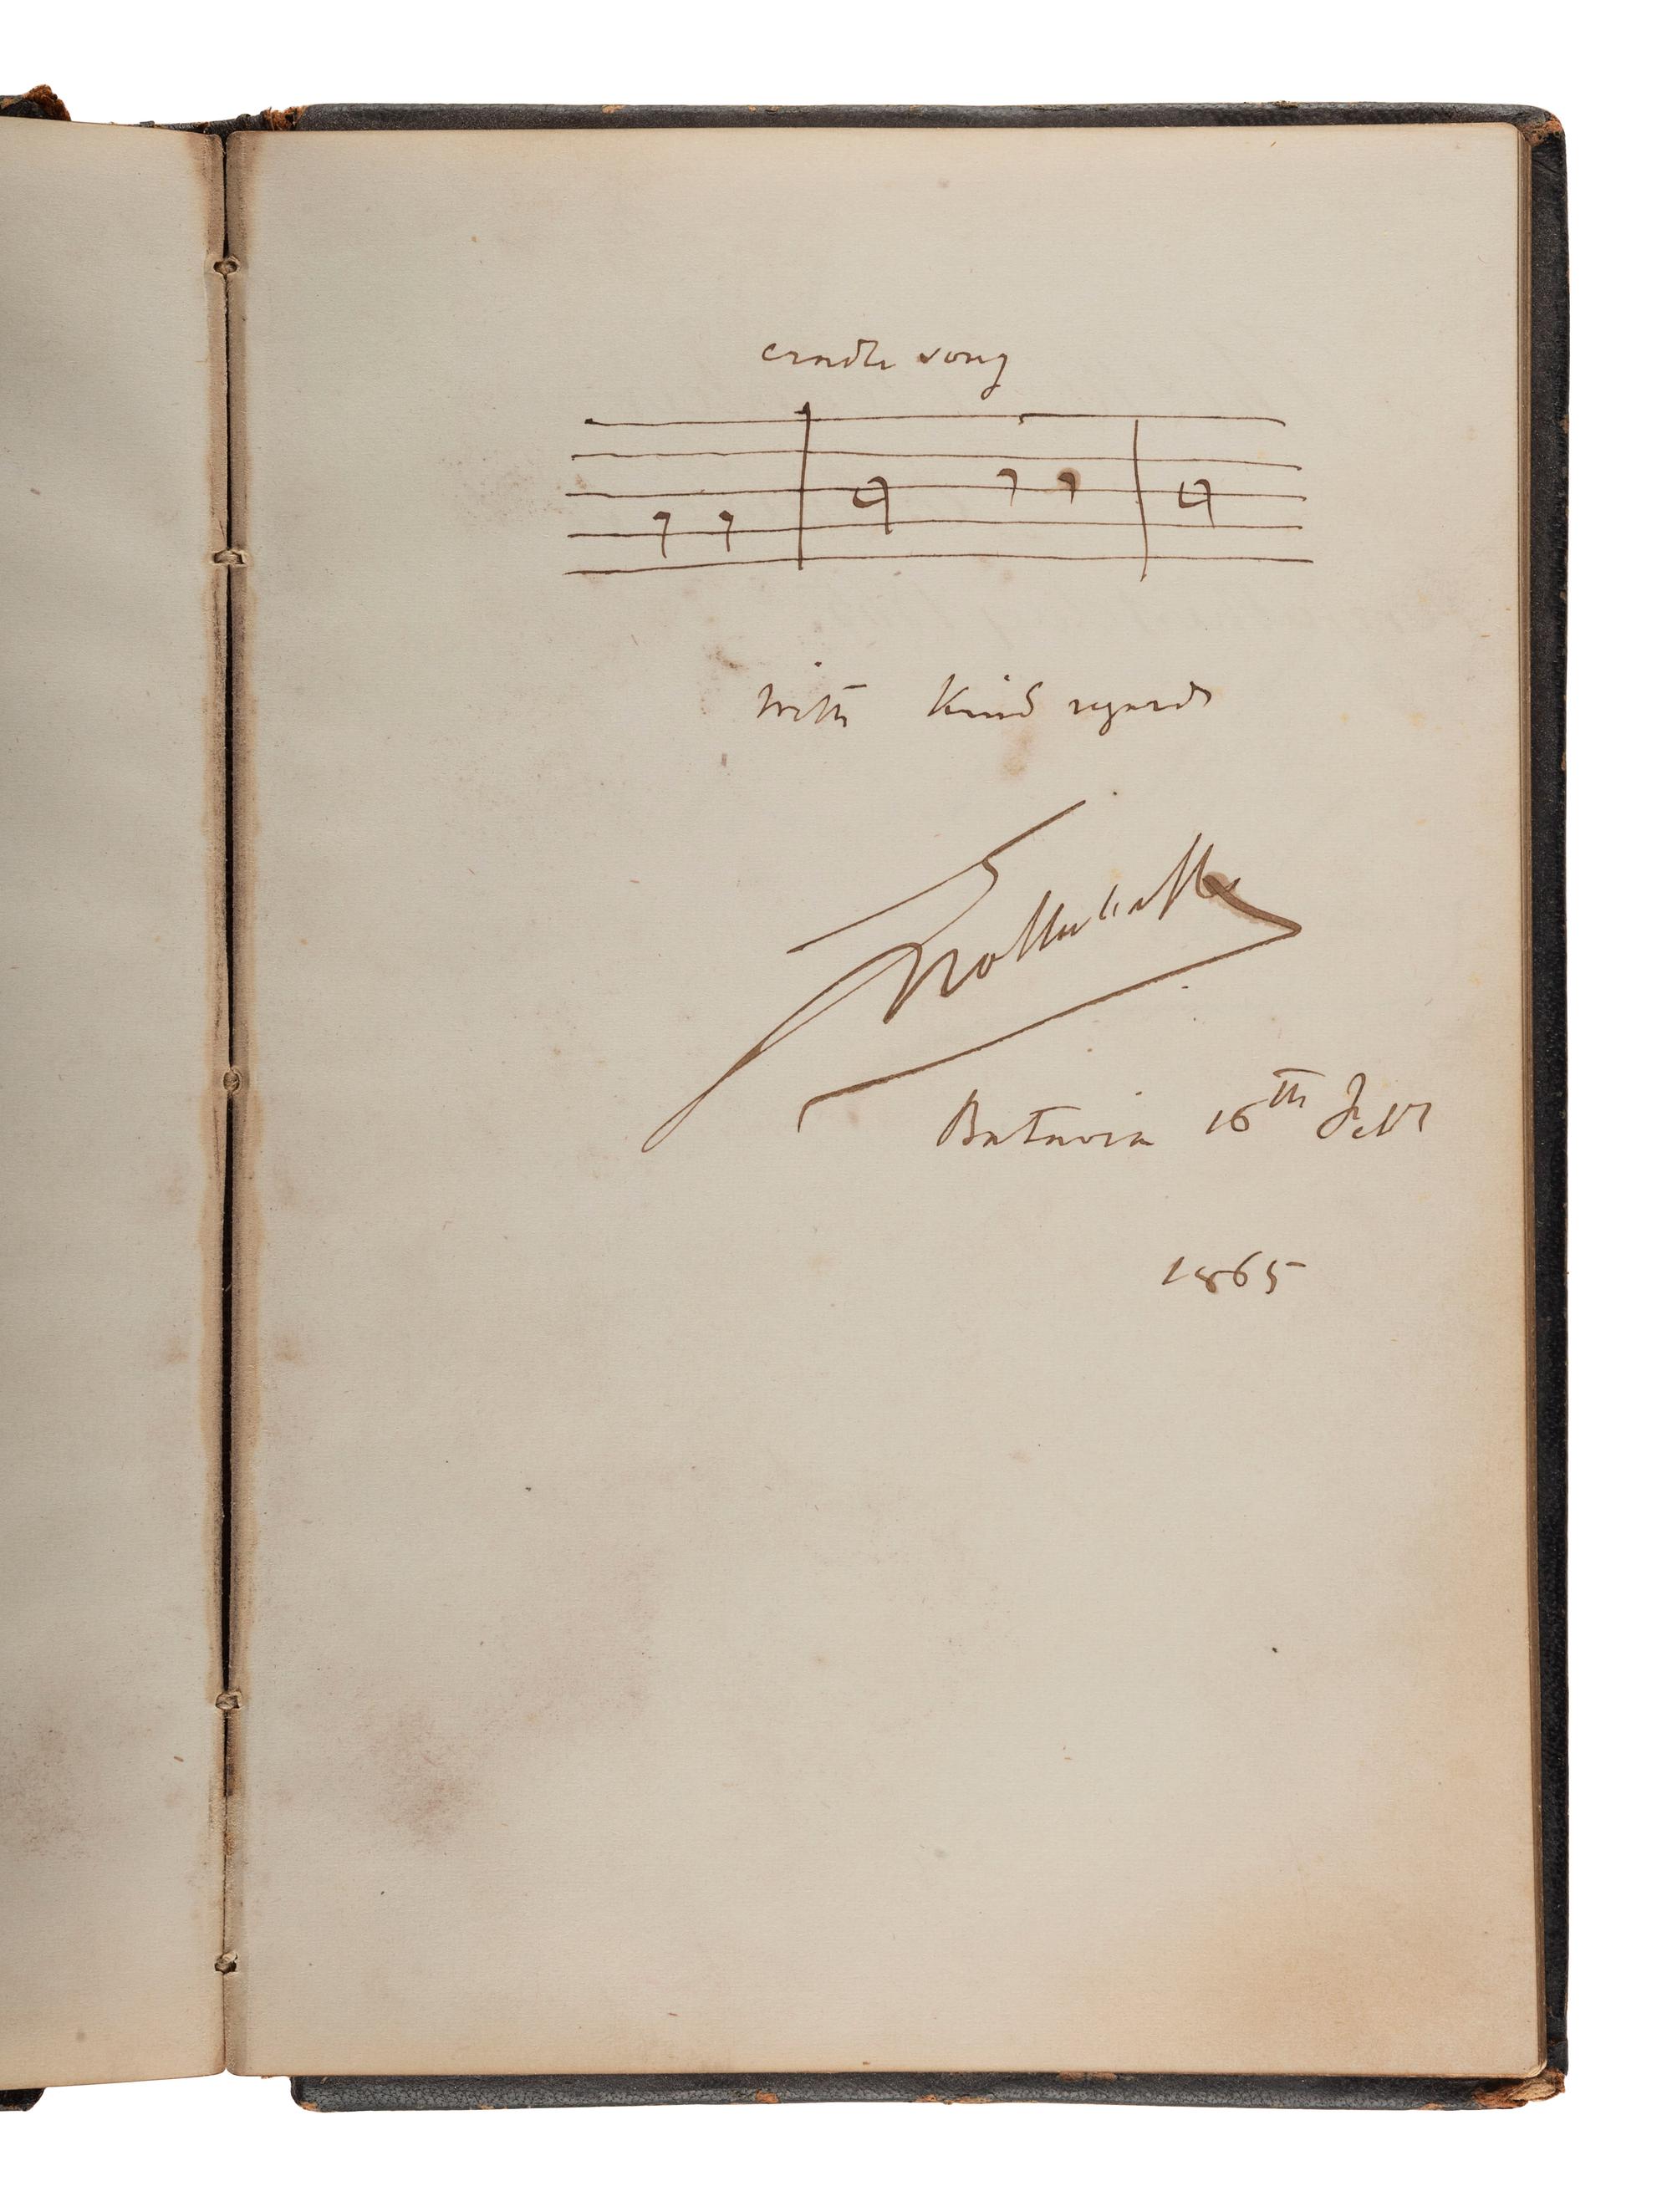 cradle song
With Kind regards
Batavia 16th
1865